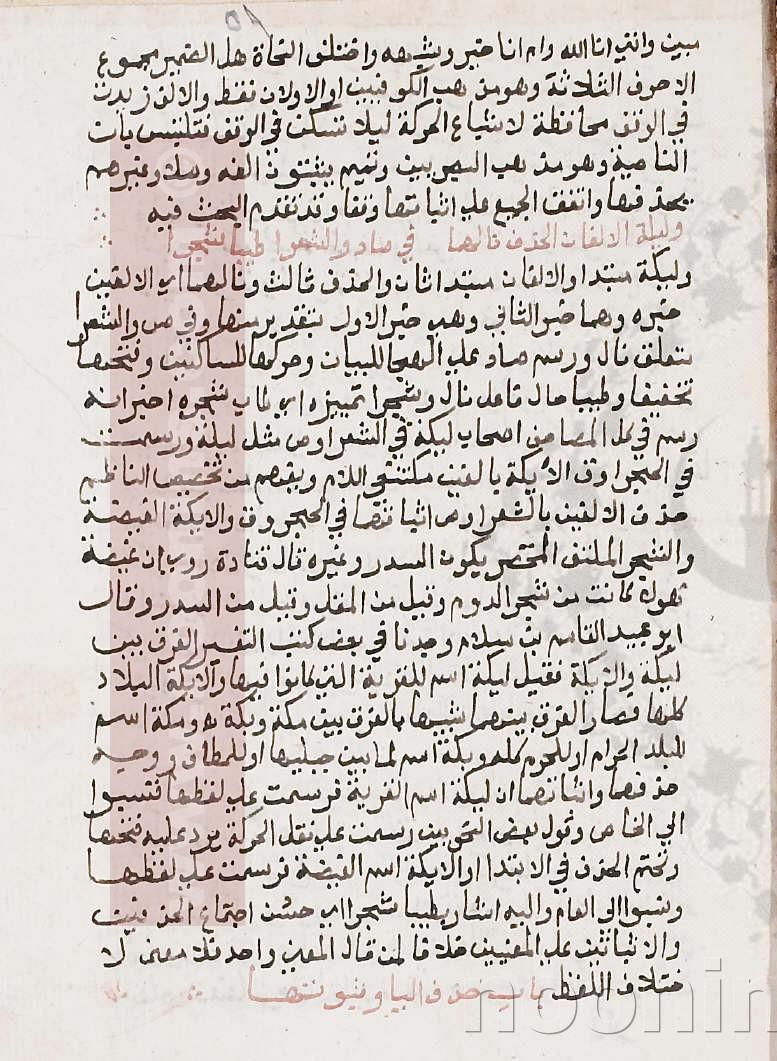 مبين وانني انا الله وام انا خير وشبهه واختلف النحاة هل الضمير مجموع
الاحرف الثلاثة وهو مذهب الكوفيين او الاولان فقط والالف زيدت
في الوقف محافظة لاشباع الحركة ليلا تسكن في الوقف فتلتبس بان
الناصبة وهو مذهب البصريين وتميم يثبتون الفه وصلا وغيرهم
يحذفها واتفق الجميع على اثباتها وقفا وقد تقدم البحث فيه
وليكة الالفان الحذف نالهما في صاد والشعرا طيبا شجرا
وليكة مبتدا والالفان مبتدا ثان والحذف ثالث ونالهما اي الالفين
خبره وهما خبر الثاني وهي خبر الاول بتقدير منها وفي ص والشعرا
متعلق نال ورسم صاد على الهجا للبيان وحركها للساكنين وفتحها
تخفيفا وطيبا حال فاعل نال وشجرا تمييزه اي طاب شجره اخبر انه
رسم في كل المصاحف اصحاب ليكة في الشعرا وص مثل ليلة ورسمت
في الحجر وق الايكة بالفين مكتنفي اللام ويفهم من تخصيص الناظم
حذف الالفين بالشعرا وص اثباتهما في الحجر وق والايكة الغيضة
والشجر الملتف المخضر يكون السدر وغيره قال قتادة روي ان غيضة
هولاء كانت من شجر الدوم وقيل من المقل وقيل من السدر وقال
ابو عبيد القاسم بن سلام وجدنا في بعض كتب التفسير الفرق بين
ليكة والايكة فقيل ليكة اسم للقرية التي كانوا فيها والايكة البلاد
كلها فصار الفرق بينهما شبيها بالفرق بين مكة وبكة ومكة اسم
للبلد الحرام او للحرم كله وبكة اسم لما بين جبليها او للمطاف ووجه
حذفهما واثباتهما ان ليكة اسم القرية فرسمت على لفظها فنسبوا
الي الخاص وقول بعض النحويين رسمت على نقل الحركة يرد عليه فتحها
وتحتم الحذف في الابتدا او الايكة اسم الغيضة فرسمت على لفظها
ونسبوا الى العام واليه اشار بطيبا شجرا اي حسن اجتماع الحذفين
والاثباتين على المعنيين خلافا لمن قال المعنى واحد فلا معنى لا
ختلاف اللفظ باب حذف اليا وثبوتها